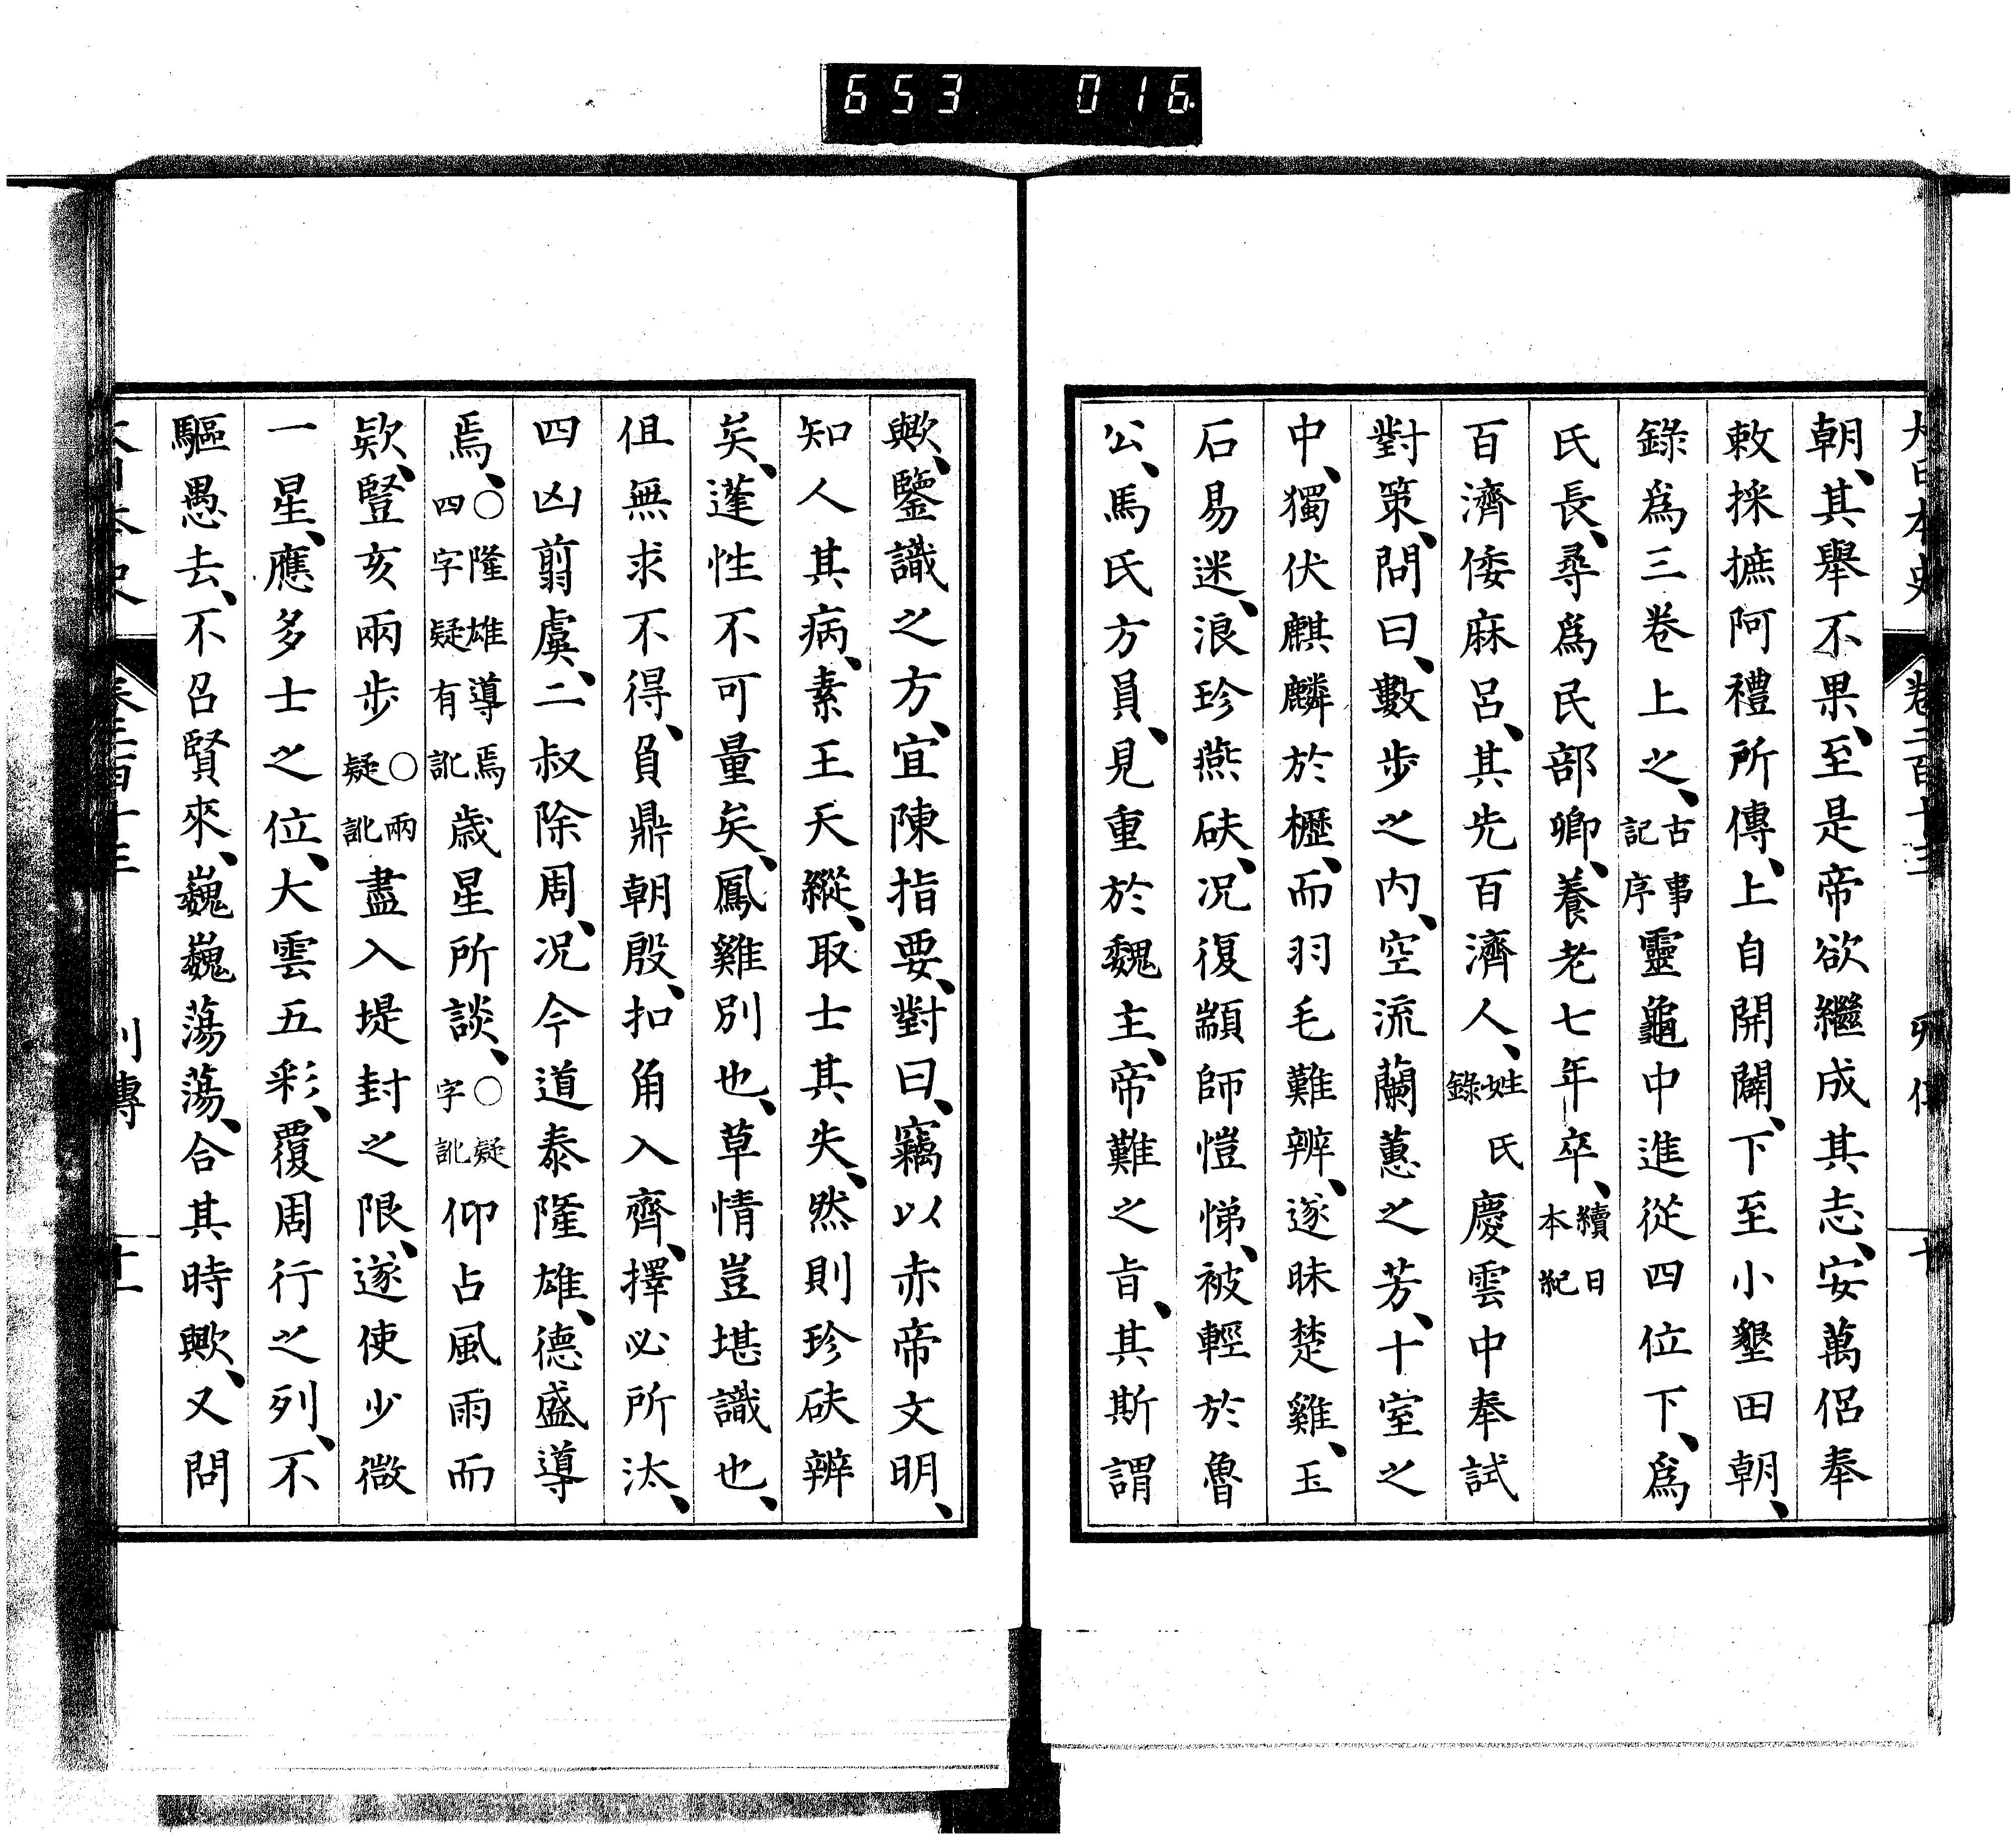 653 016
大日本史 卷二百十三 列傳 十
朝、其舉不果、至是帝欲繼成其志、安萬侶奉
敕採摭阿禮所傳、上自開闢、下至小墾田朝、
錄爲三卷上之、古事記序靈龜中進從四位下、爲
氏長、尋爲民部卿、養老七年卒、續日本紀
百濟倭麻呂、其先百濟人、姓氏錄慶雲中奉試
對策、問曰、數步之内、空流蘭蕙之芳、十室之
中、獨伏麒麟於櫪、而羽毛難辨、遂昧楚雞、玉
石易迷、浪珍燕砆、况復顓師愷悌、被輕於魯
公、馬氏方員、見重於魏主、帝難之旨、其斯謂
歟、鑒識之方、宜陳指要、對曰、竊以赤帝文明、
知人其病、素王天縱、取士其失、然則珍砆辨
矣、蓬性不可量矣、鳳雞別也、草情豈堪識也、
但無求不得、負鼎朝殷、扣角入齊、擇必所汰、
四凶翦虞、二叔除周、况今道泰隆雄、德盛導
焉、○隆雄導焉四字疑有訛歲星所談、○疑字訛仰占風雨而
欵、豎亥兩步○兩疑訛盡入堤封之限、遂使少微
一星、應多士之位、大雲五彩、覆周行之列、不
驅愚去、不召賢來、巍巍蕩蕩、合其時歟、又問
大日本史 卷二百十三 列傳 十一